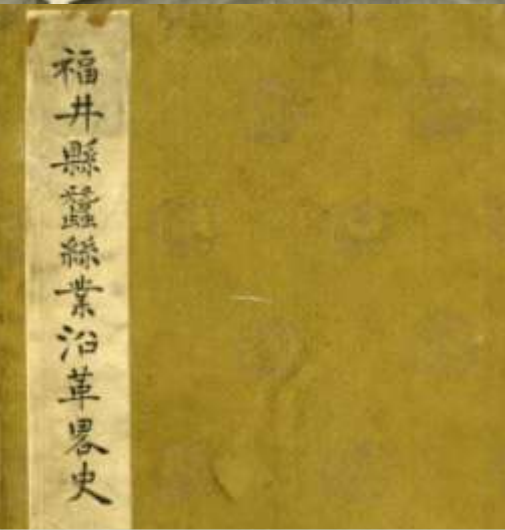 福井縣蠶絲業沿革畧史